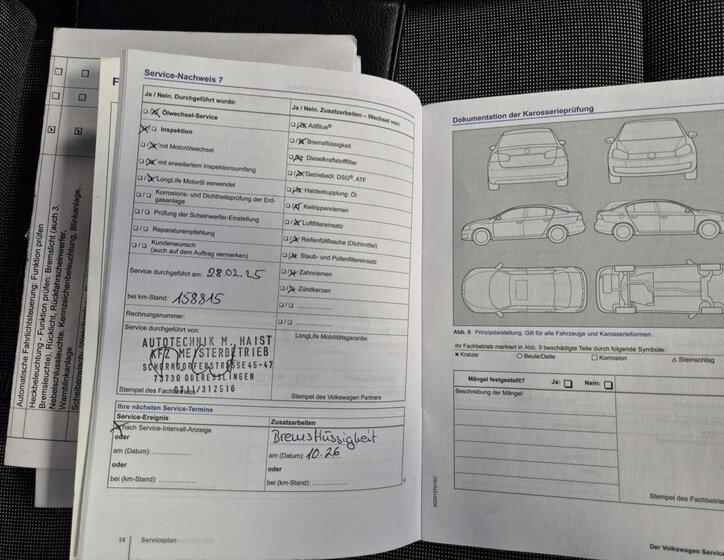 Automatische Fahrlichtsteuerung: Funktion prüfen
Heckbeleuchtung - Funktion prüfen: Bremslicht (auch 3.
Bremsleuchte), Rücklicht, Rückfahrscheinwerfer,
Nebelschlussleuchte, Kennzeichenbeleuchtung, Blinkanlage,
Warnblinkanlage
F
Service-Nachweis 7
Ja / Nein. Durchgeführt wurde:
Ölwechsel-Service
Inspektion
mit Motorölwechsel
mit erweitertem Inspektionsumfang
LongLife Motoröl verwendet
Korrosions- und Dichtheitsprüfung der Erd-
gasanlage
Prüfung der Scheinwerfer-Einstellung
Reparaturempfehlung
Kundenwunsch
(auch auf dem Auftrag vermerken)
Service durchgeführt am: 28.02.25
bei km-Stand: 158815
Rechnungsnummer:
Service durchgeführt von:
AUTOTECHNIK M. HAIST
KFZ MEISTERBETRIEB
SCHORNDORFERSTRASSE 45-47
73730 OBERESSLINGEN
0711/312516
Stempel des Fachbetriebs
Ja / Nein. Zusatzarbeiten – Wechsel von:
AdBlue®
Bremsflüssigkeit
Dieselkraftstofffilter
Getriebeöl: DSG®, ATF
Haldexkupplung: Öl
Keilrippenriemen
Luftfiltereinsatz
Reifenfüllflasche (Dichtmittel)
Staub- und Pollenfiltereinsatz
Zahnriemen
Zündkerzen
LongLife Mobilitätsgarantie:
Stempel des Volkswagen Partners
Ihre nächsten Service-Termine
Service-Ereignis
nach Service-Intervall-Anzeige
oder
am (Datum):
oder
bei (km-Stand):
Zusatzarbeiten
Bremsflüssigkeit
am (Datum): 10.26
oder
bei (km-Stand):
18 Serviceplan
Dokumentation der Karosserieprüfung
Abb. 9 Prinzipdarstellung. Gilt für alle Fahrzeuge und Karosserieformen.
Ihr Fachbetrieb markiert in Abb. 9 beschädigte Teile durch folgende Symbole:
× Kratzer ○ Beule/Delle □ Korrosion △ Steinschlag
Mängel festgestellt? Ja: Nein:
Beschreibung der Mängel:
Stempel des Fachbetrie
Der Volkswagen Service